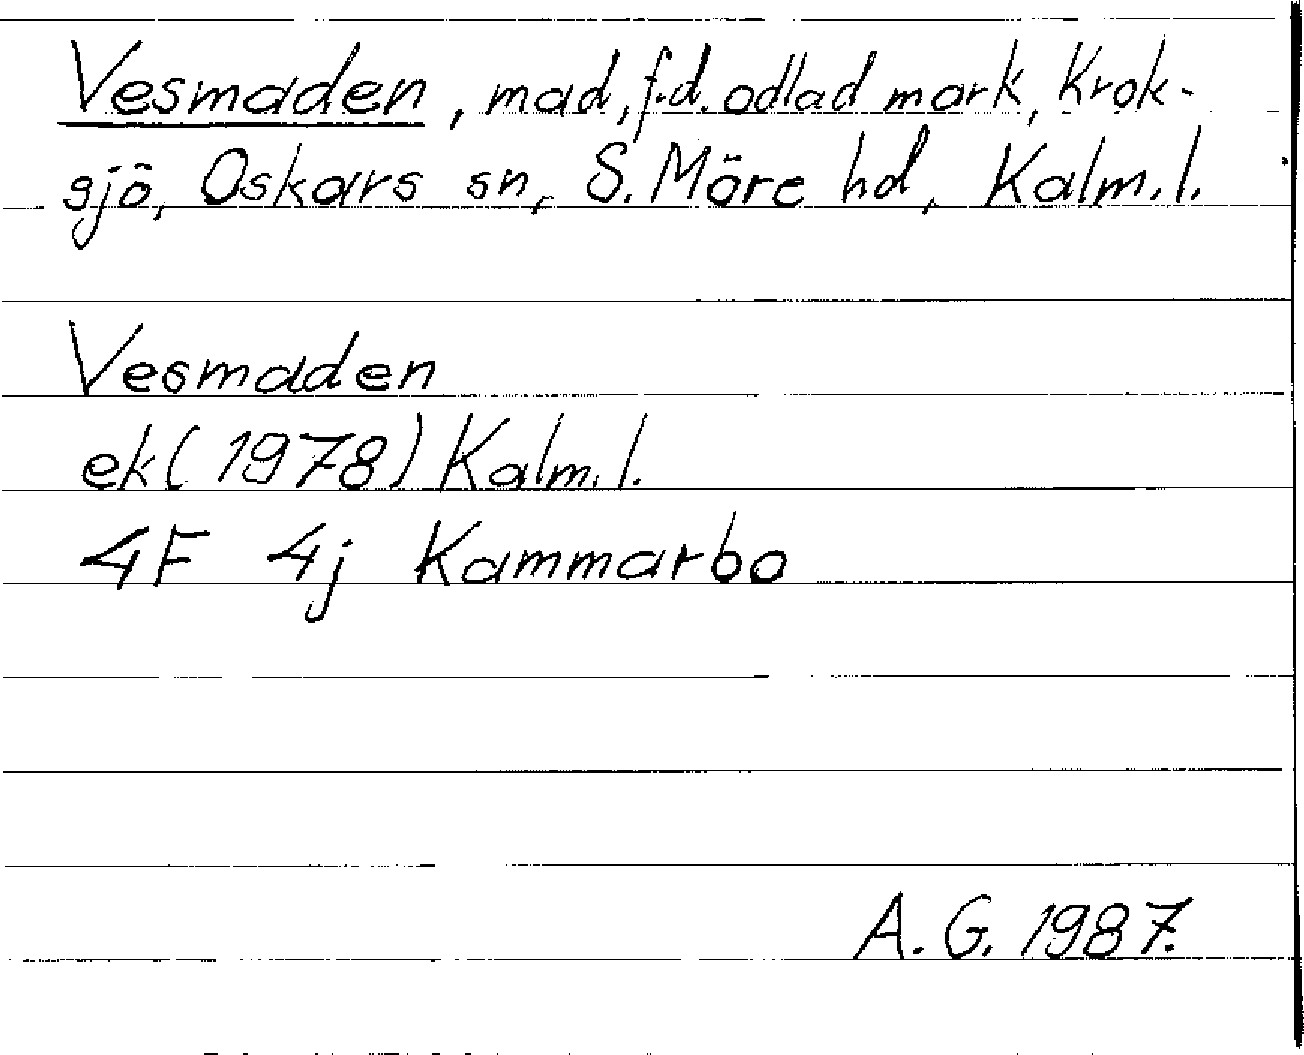 Vesmaden, mad, f.d. odlad mark, Krok-
sjö, Oskars sn, S. Möre hd, Kalm. l.
Vesmaden
ek (1978) Kalm. l.
4F 4j Kammarbo
A. G. 1987.